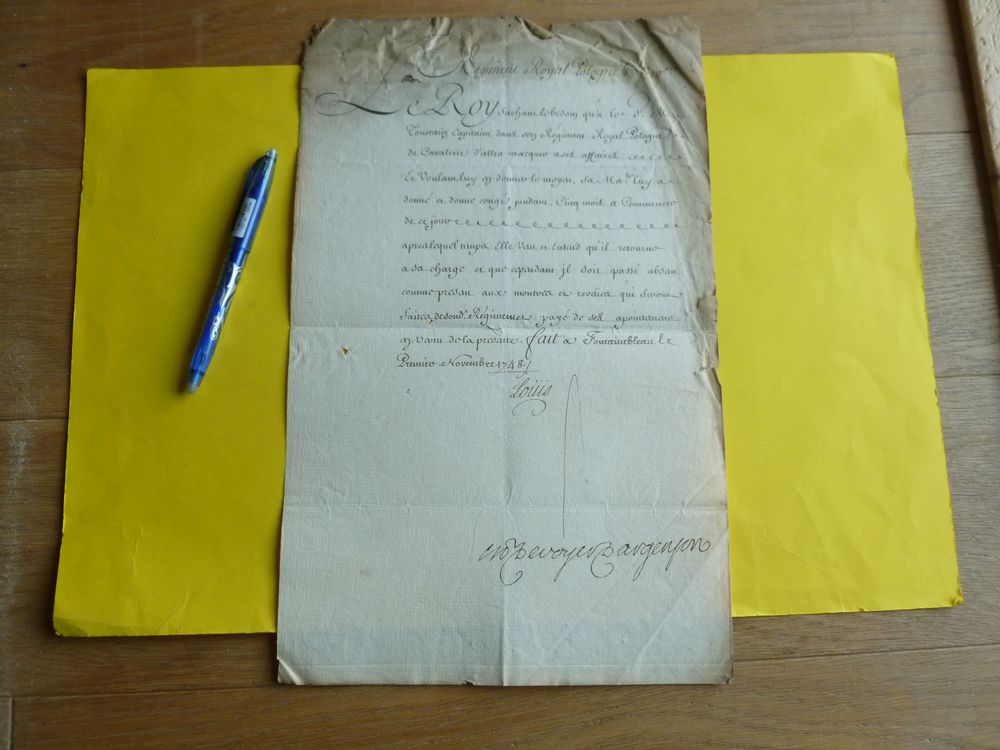 Régiment Royal Pologne
Le Roy Sachant le besoin qu'a le S.
Toustain Capitaine dans son Régiment Royal Pologne
de Cavalerie d'aller vacquer a ses affaires
Et Voulant luy en donner le moyen, Sa Ma.té luy a
donné et donne congé pendant Cinq mois a Commencer
de ce jour
apres lequel temps Elle Veut et Entend qu'il retourne
a sa charge et que cependant jl soit passé absent
comme present aux montres et reveües qui seront
faites de son d. Régiment et payé de ses apointemens
en vertu de la presente. fait a Fontainebleau le
Premier Novembre 1748 ./.
Louis
de voyer d'argenson